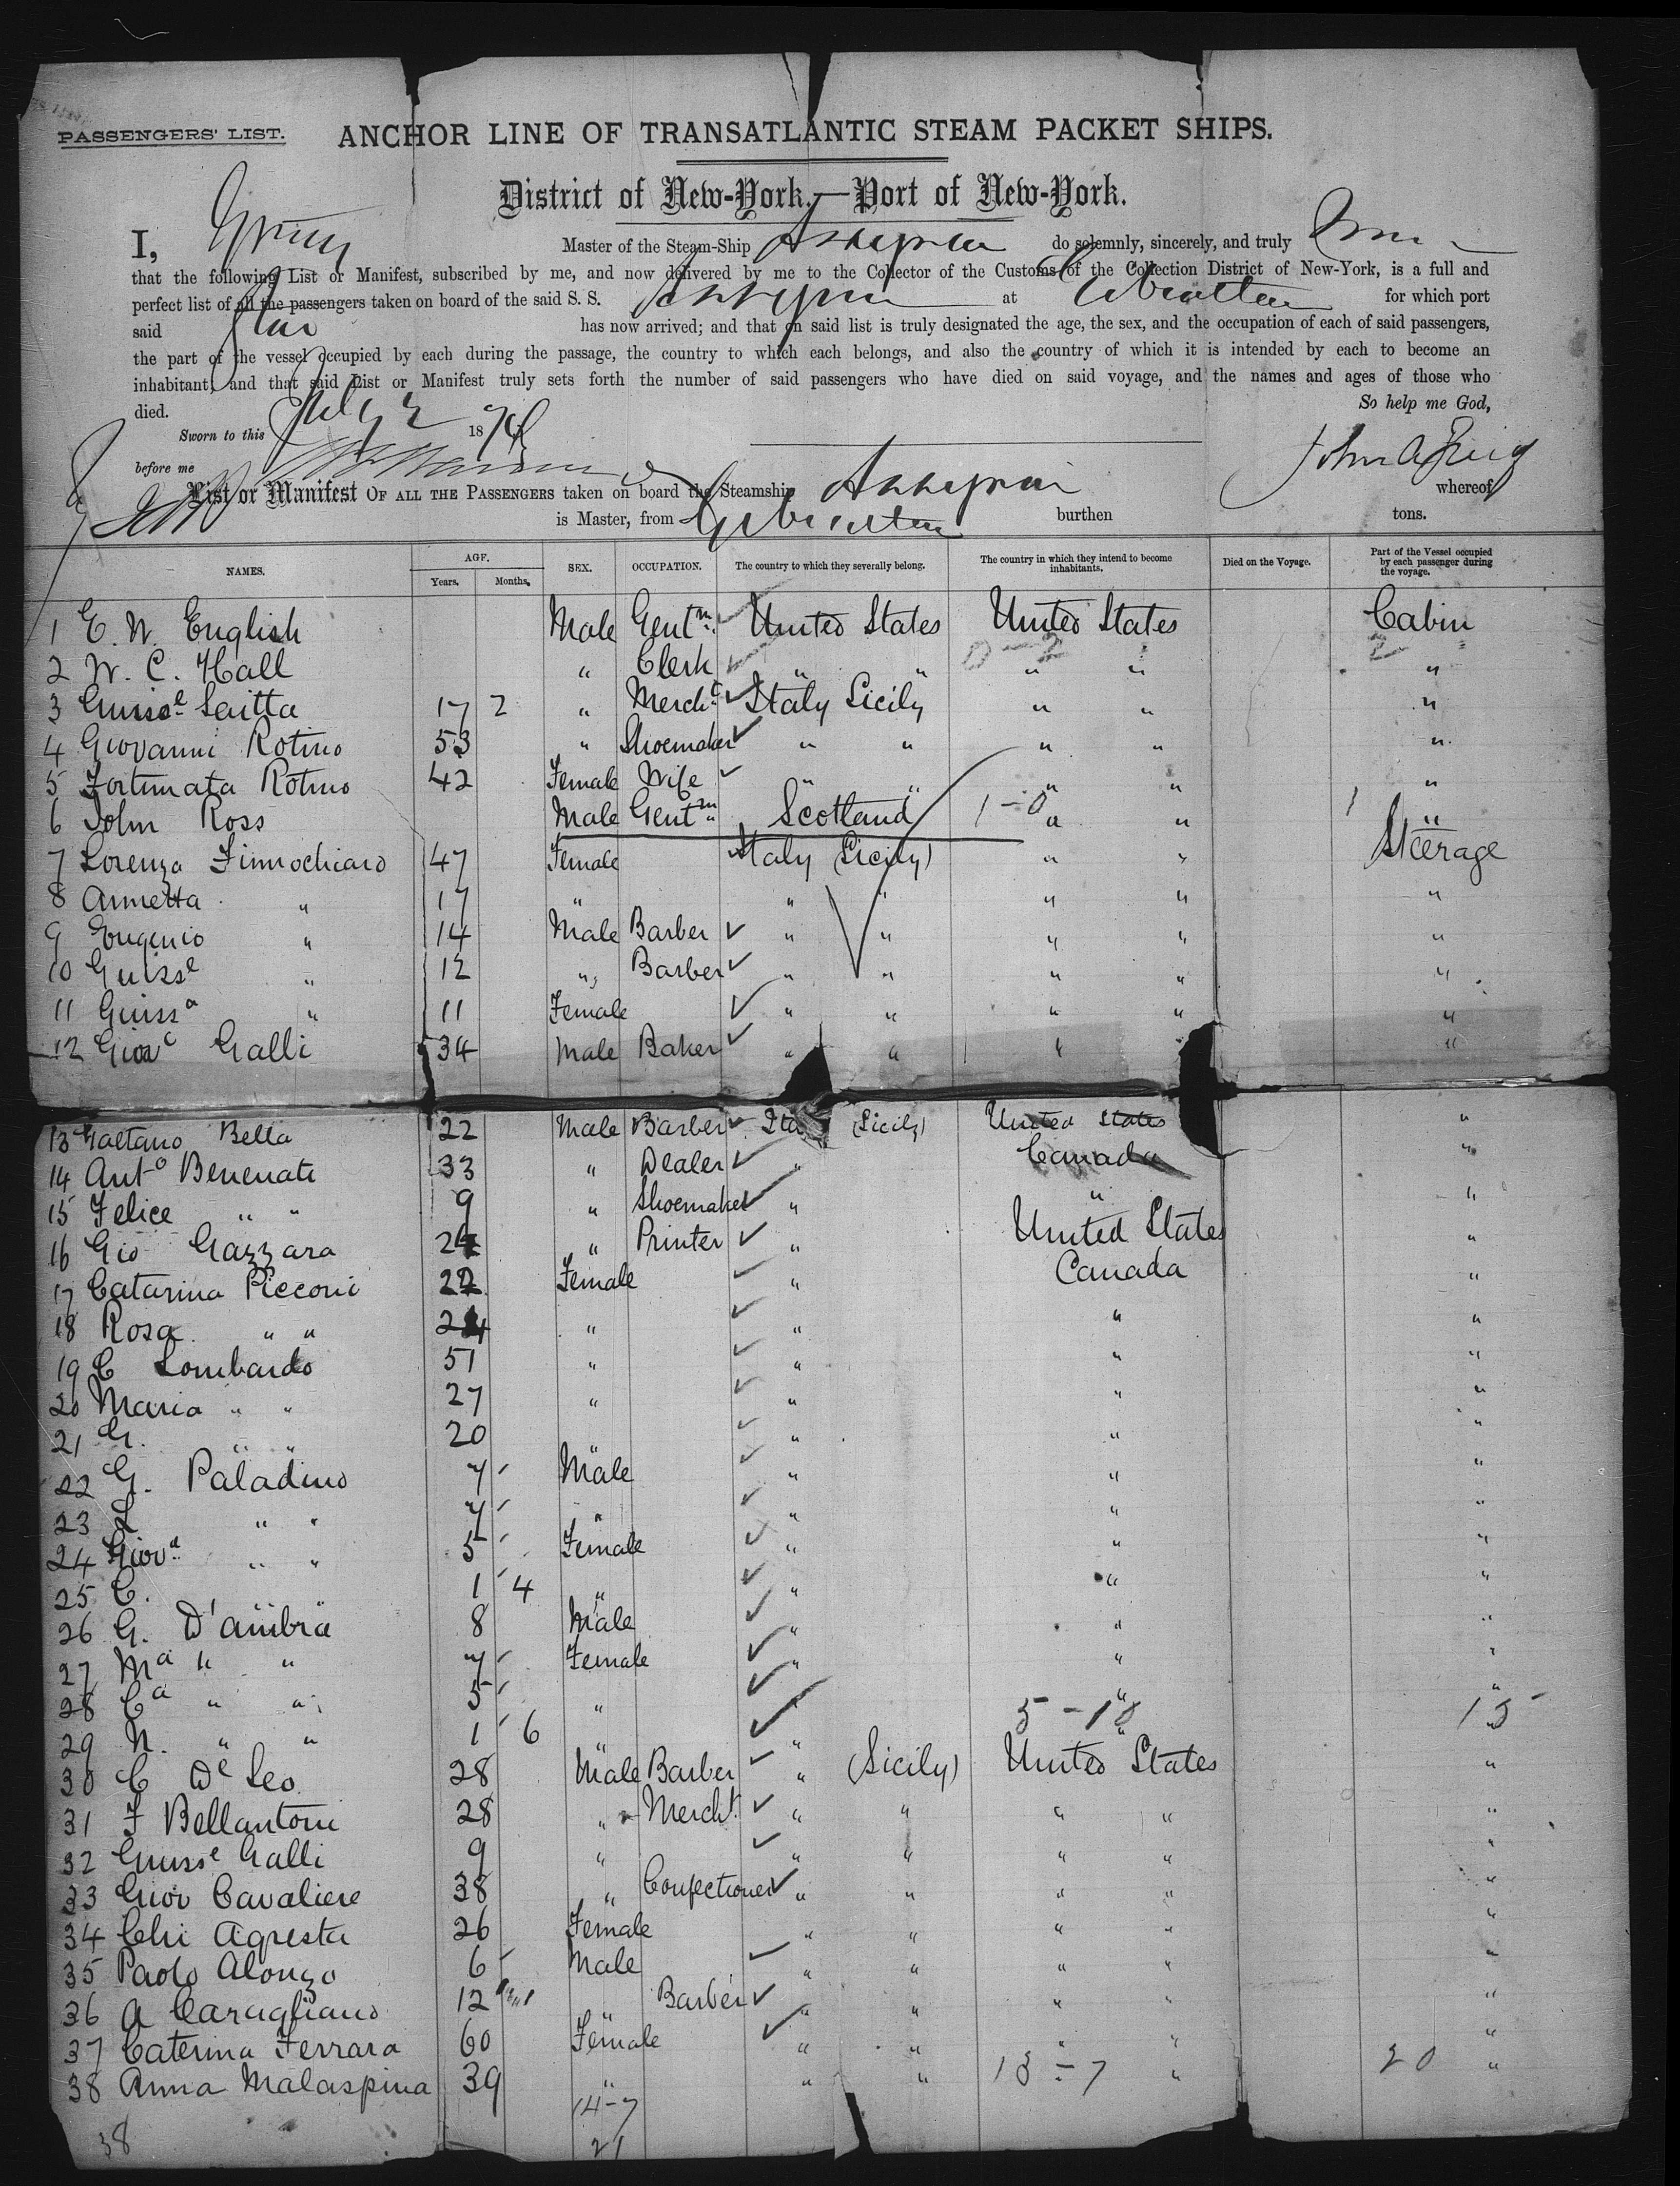 PASSENGERS' LIST.
ANCHOR LINE OF TRANSATLANTIC STEAM PACKET SHIPS.
District of New-York,—Port of New-York.
I, Master of the Steam-Ship Assyria do solemnly, sincerely, and truly
that the following List or Manifest, subscribed by me, and now delivered by me to the Collector of the Customs of the Collection District of New-York, is a full and
perfect list of all the passengers taken on board of the said S. S. Assyria at Gibraltar for which port
said has now arrived; and that on said list is truly designated the age, the sex, and the occupation of each of said passengers,
the part of the vessel occupied by each during the passage, the country to which each belongs, and also the country of which it is intended by each to become an
inhabitant; and that said List or Manifest truly sets forth the number of said passengers who have died on said voyage, and the names and ages of those who
died. So help me God,
Sworn to this July 2 187
before me
List or Manifest OF ALL THE PASSENGERS taken on board the Steamship Assyria whereof
is Master, from Gibraltar burthen tons.
NAMES. AGE. Years. Months. SEX. OCCUPATION. The country to which they severally belong. The country in which they intend to become inhabitants. Died on the Voyage. Part of the Vessel occupied by each passenger during the voyage.
1 E. W. English Male Gentn United States United States Cabin
2 W. C. Hall " Clerk " " " " "
3 Guisse Saitta 17 2 " Mercht Italy Sicily " " "
4 Giovanni Rotino 53 " Shoemaker " " " " "
5 Fortunata Rotino 42 Female Wife " " " " "
6 John Ross Male Gentn Scotland 1-0 " " 1 "
7 Lorenza Finnochiaro 47 Female Italy (Sicily) " " Steerage
8 Annetta " 17 " " " " " "
9 Eugenio " 14 Male Barber " " " " "
10 Guisse " 12 " Barber " " " " "
11 Guissa " 11 Female " " " " "
12 Giove Galli 34 Male Baker " " " "
13 Gaetano Bella 22 Male Barber Ita (Sicily) United States "
14 Anto Benenati 33 " Dealer " Canada "
15 Felice " " 9 " Shoemaker " " "
16 Gio Gazzara 24 " Printer " United States "
17 Catarina Picconi 22 Female " Canada "
18 Rosa " " 24 " " " "
19 C Lombardo 51 " " " "
20 Maria " " 27 " " " "
21 G. " " 20 " " " "
22 G. Paladino 7 Male " " "
23 L " " 7 " " " "
24 Giova " " 5 Female " " "
25 C. " " 1 4 " " " "
26 G. D'ambra 8 Male " " "
27 Ma " " 7 Female " " "
28 Ca " " 5 " " "
29 N. " " 1 6 " " 5-10 15
30 C De Leo 28 Male Barber " (Sicily) United States "
31 F Bellantoni 28 " Mercht " " " " "
32 Guisse Galli 9 " " " " " "
33 Giov Cavaliere 38 " Confectioner " " " " "
34 Chi Agresta 26 Female " " " " "
35 Paolo Alonzo 6 Male " " " " "
36 A Carugliano 12 " Barber " " " " "
37 Caterina Ferrara 60 Female " " " " "
38 Anna Malaspina 39 " " " 13-7 " 20 "
14-7
38 21